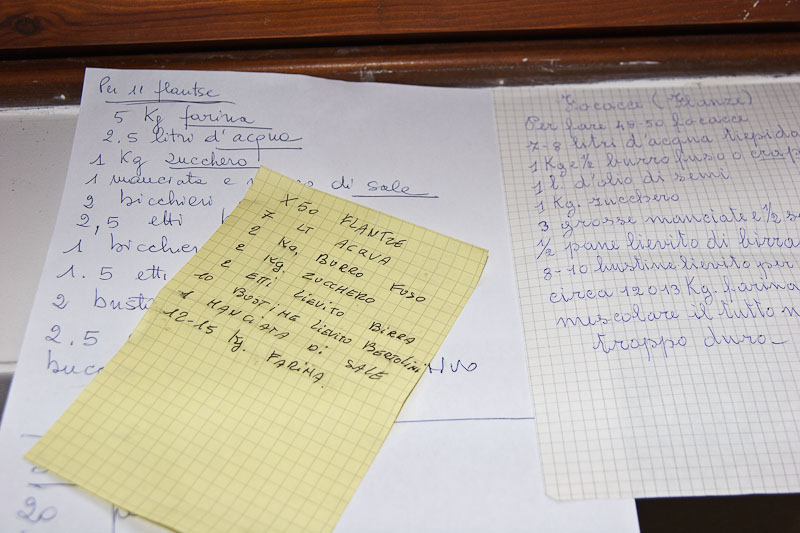 Per 11 flantse
5 Kg farina
2.5 litri d'acqua
1 Kg zucchero
1 manciata e di sale
2 bicchieri
2,5 etti
1 bicchier
1.5 etti
2 busti
2.5
bucc
20
X 50 FLANTZE
7 LT ACQUA
2 Kg. BURRO FUSO
2 Kg. ZUCCHERO
2 ETTI LIEVITO BIRRA
10 BUSTINE LIEVITO BERTOLINI
1 MANCIATA DI SALE
12-15 Kg. FARINA.
Focacce (Flanze)
Per fare 49-50 focacce
7-8 litri d'acqua tiepida
1 Kg e ½ burro fuso o
1 l. d'olio di semi
1 Kg. zucchero
3 grosse manciate e ½ s
½ pane lievito di birra
8-10 bustine lievito per
circa 12 o 13 Kg farina
mescolare il tutto n
troppo duro